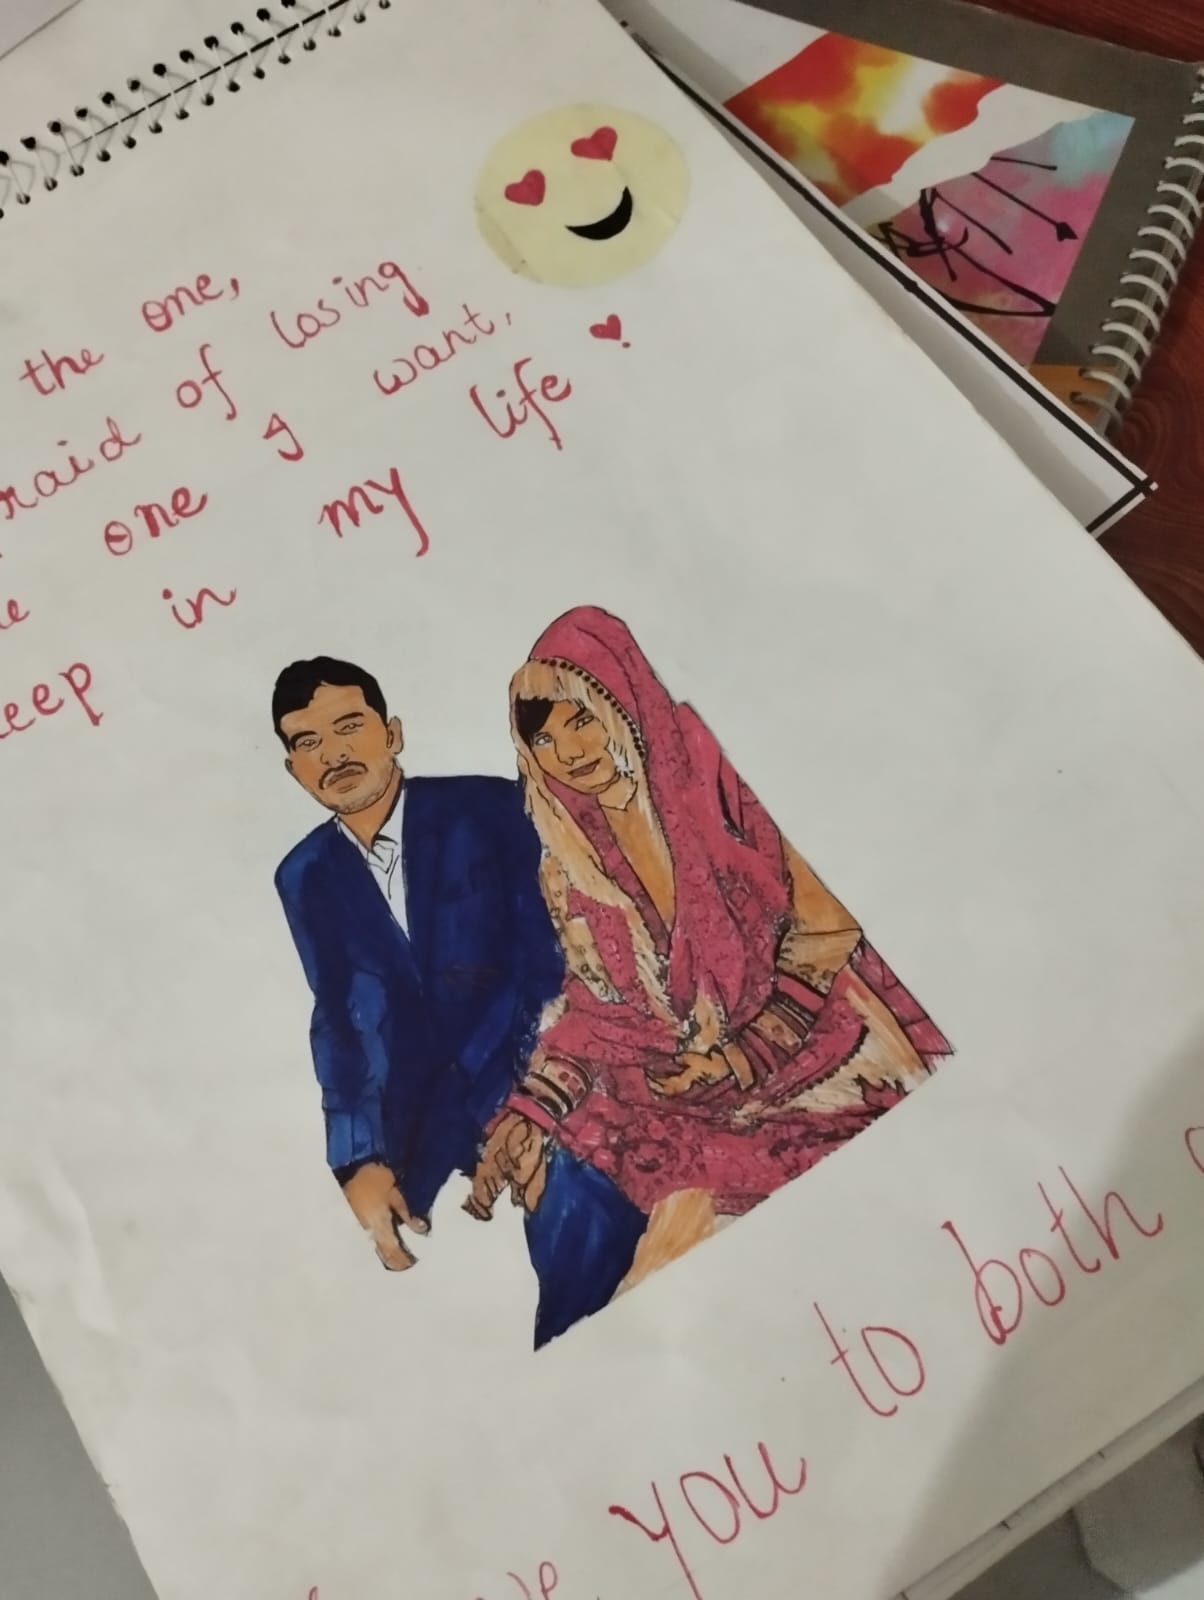 the one,
raid of losing
one I want,
eep in my life
ve you to both